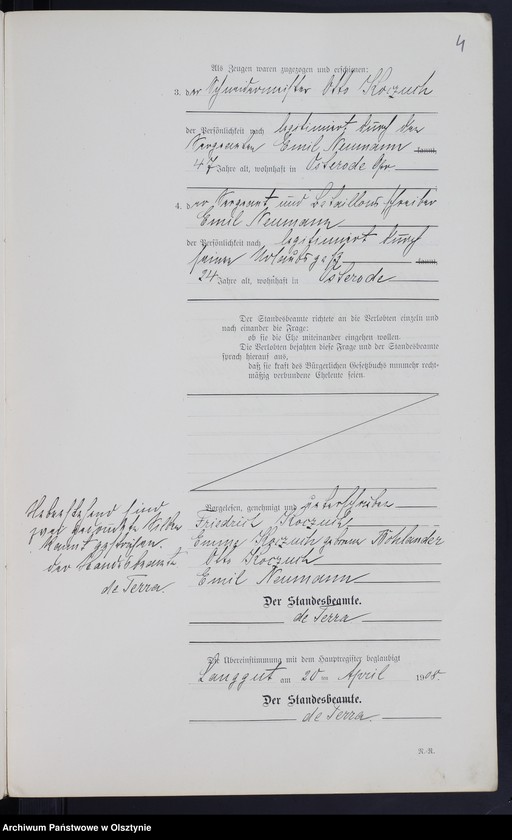 4
Als Zeugen waren zugezogen und erschienen:
3. der Schneidermeister Otto Koczuch
der Persönlichkeit nach legitimiert durch den
Sergeanten Emil Neumann kannt,
47 Jahre alt, wohnhaft in Osterode Opr
4. der Sergeant und Bataillons-schreiber
Emil Neumann
der Persönlichkeit nach legitimiert durch
seinen Urlaubspaß kannt,
24 Jahre alt, wohnhaft in Osterode
Der Standesbeamte richtete an die Verlobten einzeln und
nach einander die Frage:
ob sie die Ehe miteinander eingehen wollen.
Die Verlobten bejahten diese Frage und der Standesbeamte
sprach hierauf aus,
daß sie kraft des Bürgerlichen Gesetzbuchs nunmehr recht-
mäßig verbundene Eheleute seien.
Vorgelesen, genehmigt und unterschrieben
Friedrich Koczuch
Emma Koczuch geborene Mohlander
Otto Koczuch
Emil Neumann
Der Standesbeamte.
de Terra
Nebenstehend sind
zwei gedruckte Silben
kannt gestrichen.
der Standesbeamte
de Terra.
Die Übereinstimmung mit dem Hauptregister beglaubigt
Langgut am 20 ten April 1908.
Der Standesbeamte.
de Terra.
Archiwum Państwowe w Olsztynie